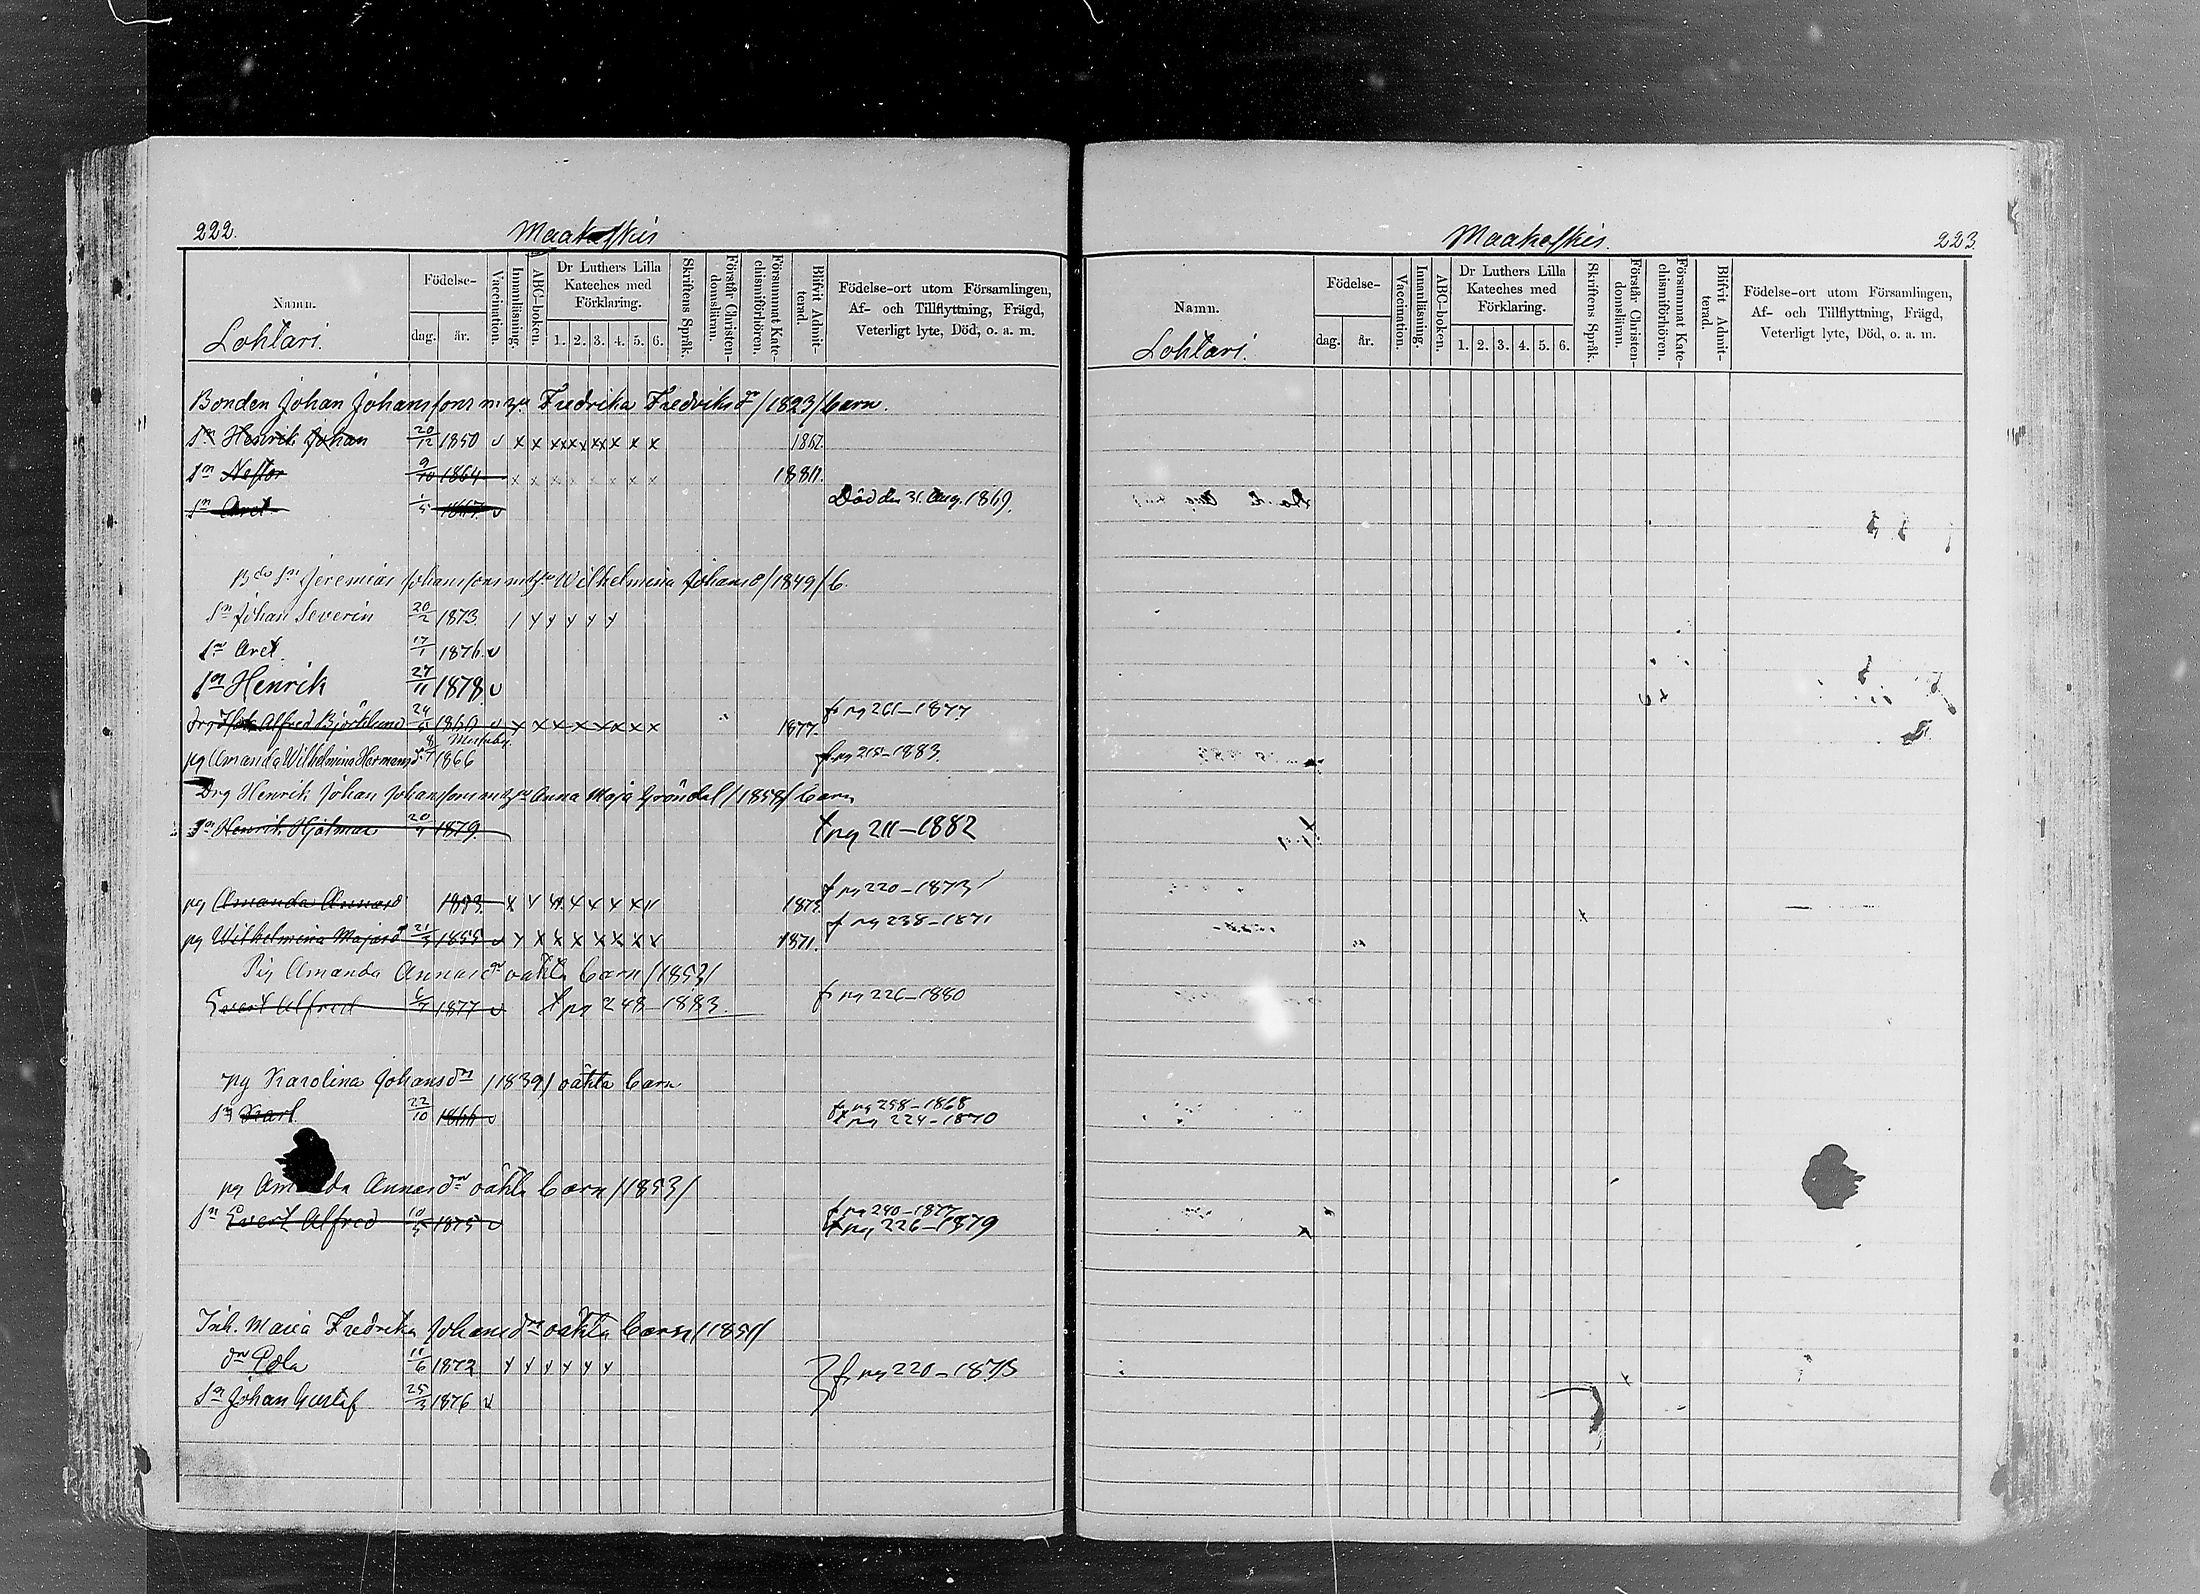 222.
Maakeskis
Namn.
Lohtari.
Födelse-
dag.
år.
Vaccination.
Innanläsning.
ABC-boken.
Dr Luthers Lilla
Kateches med
Förklaring.
1. 2. 3. 4. 5. 6.
Skriftens Språk.
Förstår Christen-
domsläran.
Försummat Kate-
chismiförhören.
Blifvit Admit-
terad.
Födelse-ort utom Församlingen,
Af- och Tillflyttning, Frägd,
Veterligt lyte, Död, o. a. m.
Bonden Johan Johanssons m. h. Fredrika Fredriksdr /1823/ barn.
Sn Henrik Johan 20/12 1850 v x x xxx xxx x x x 1867.
Sn Nestor 9/10 1864 x x x x x x x x 1881.
Sn Axel 1/5 1867 v Död den 31. Aug. 1869.
Bdo Sn Jeremias Johanssons m. h. Wilhelmina Johansd /1849/ b.
Sn Johan Severin 20/2 1873 / y y y y y
Sn Axel 17/1 1876. v
Sn Henrik 27/11 1878. v
drg Alfred Björklund 24/6 1860 v x x x x x x x x 1877. fr pg 261–1877
pg Amanda Wilhelmina Hermansd. 8/7 1866 fr pg 215–1883.
Drg Henrik Johan Johanssons m. h. Anna Maja Gröndal /1858/ barn
Sn Henrik Hjalmar 20/9 1879. t pg 211–1882
pg Amanda Annasd 1853. x v x x x x x v 1873. fr pg 220–1873
pg Wilhelmina Majasd 21/3 1855 v y x x x x x x x 1871. fr pg 238–1871
Pig Amanda Annasdr oäkta barn /1853/
Evert Alfred 6/7 1877 v t pg 248–1883. fr pg 226–1880
pg Karolina Johansdr /1839/ oäkta barn
Sn Karl 22/10 1866 v fr pg 258–1868
t pg 224–1870
pg Amanda Annasdr oäkta barn /1853/
Sn Evert Alfred 10/5 1875 v fr pg 240–1877
t pg 226–1879
Inh. Maria Fredrika Johansdr oäkta barn /1851/
dr Ida 11/6 1872 y y y y y y fr pg 220–1875
Sn Johan Gustaf 25/3 1876 v
Maakeskis.
223
Namn.
Lohtari.
Födelse-
dag.
år.
Vaccination.
Innanläsning.
ABC-boken.
Dr Luthers Lilla
Kateches med
Förklaring.
1. 2. 3. 4. 5. 6.
Skriftens Språk.
Förstår Christen-
domsläran.
Försummat Kate-
chismiförhören.
Blifvit Admit-
terad.
Födelse-ort utom Församlingen,
Af- och Tillflyttning, Frägd,
Veterligt lyte, Död, o. a. m.